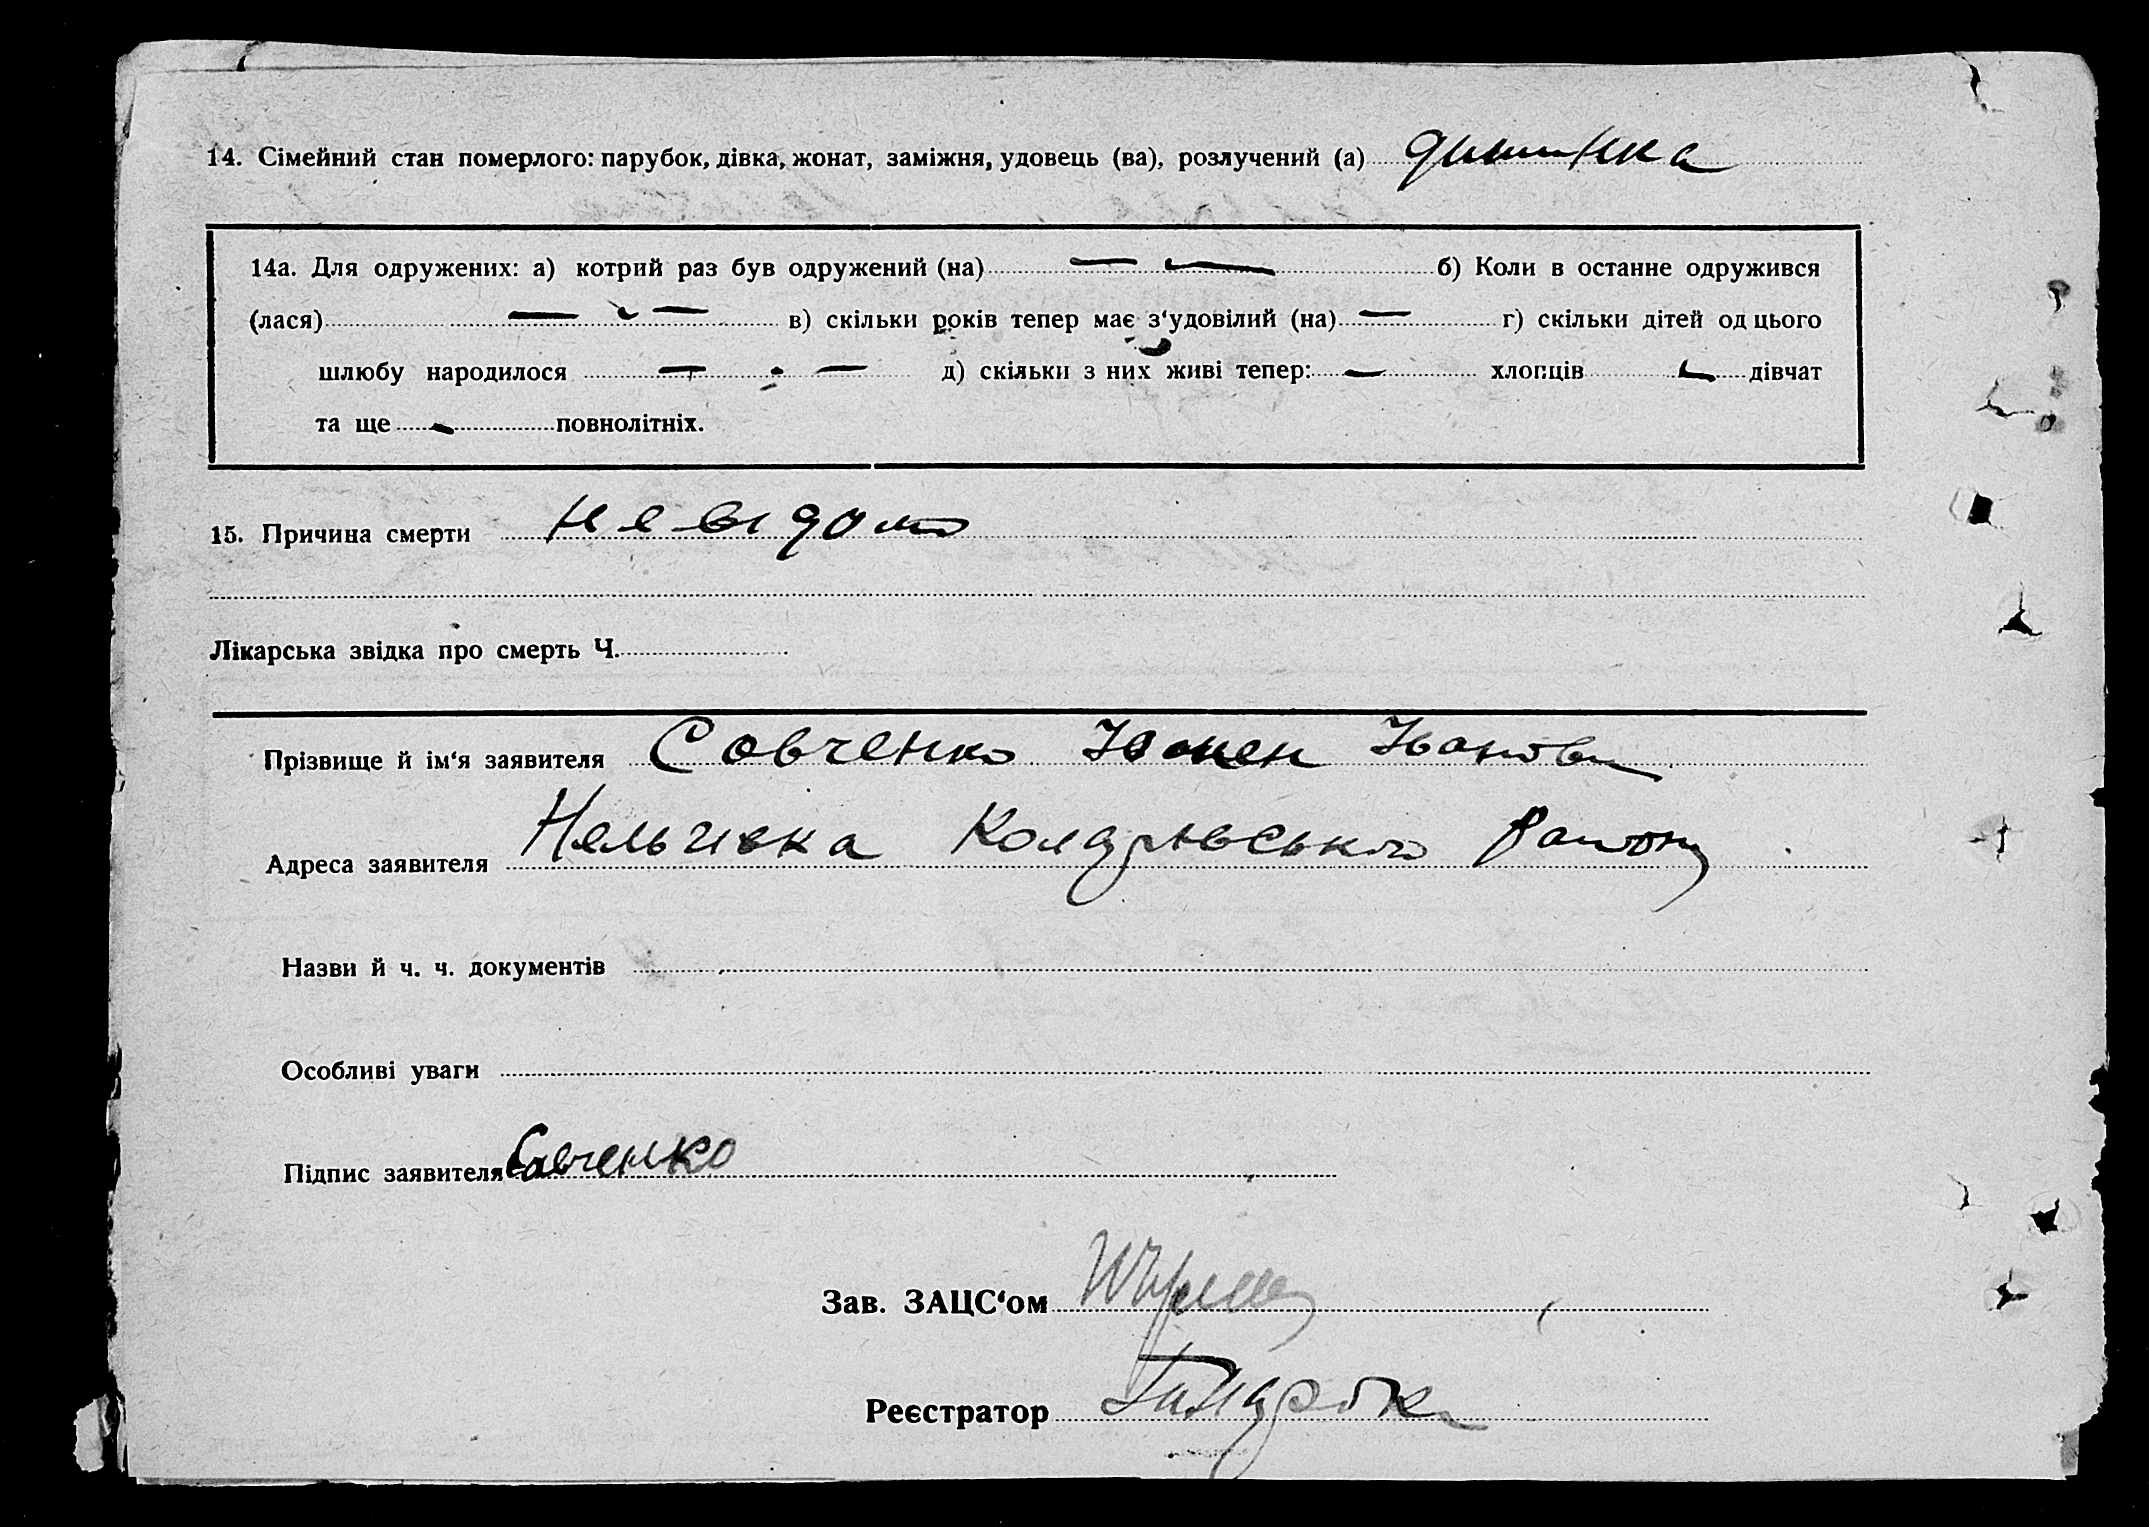 14. Сімейний стан померлого: парубок, дівка, жонат, заміжня, удовець (ва), розлучений (а) дитинка
14а. Для одружених: а) котрий раз був одружений (на) — — б) Коли в останне одружився
(лася) — — в) скільки років тепер має з‘удовілий (на) — г) скільки дітей од цього
шлюбу народилося — — д) скільки з них живі тепер: — хлопців — дівчат
та ще — повнолітніх.
15. Причина смерти невідомо
Лікарська звідка про смерть Ч.
Прізвище й ім‘я заявителя Савченко Іванов
Адреса заявителя району
Назви й ч. ч. документів
Особливі уваги
Підпис заявителя Савченко
Зав. ЗАЦС‘ом
Реєстратор